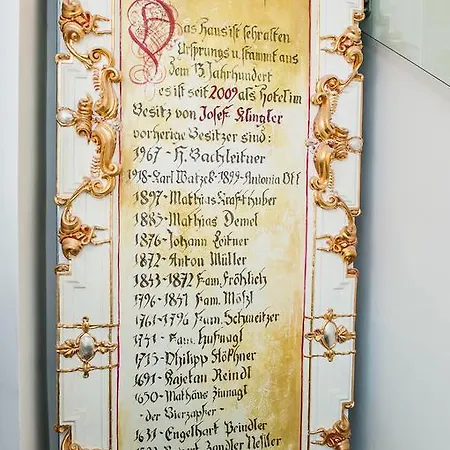 Das Haus ist sehr alten
Ursprungs u. stammt aus
dem 13 Jahrhundert
es ist seit 2009 als Hotel im
Besitz von Josef Klingler
vorherige Besitzer sind:
1967 - H. Bachleitner
1918 - Karl Watzek - 1899 - Antonia Ott
1897 - Mathias Krafthuber
1883 - Mathias Demel
1876 - Johann Leitner
1872 - Anton Müller
1843 - 1872 Fam. Fröhlich
1796 - 1841 Fam. Mößl
1761 - 1796 Fam. Schweitzer
1741 - Fam. Hufnagl
1713 - Philipp
1691 - Kajetan Reindl
1650 - Mathäus Zinnagl
- der Bierzapfer -
1631 - Engelhart